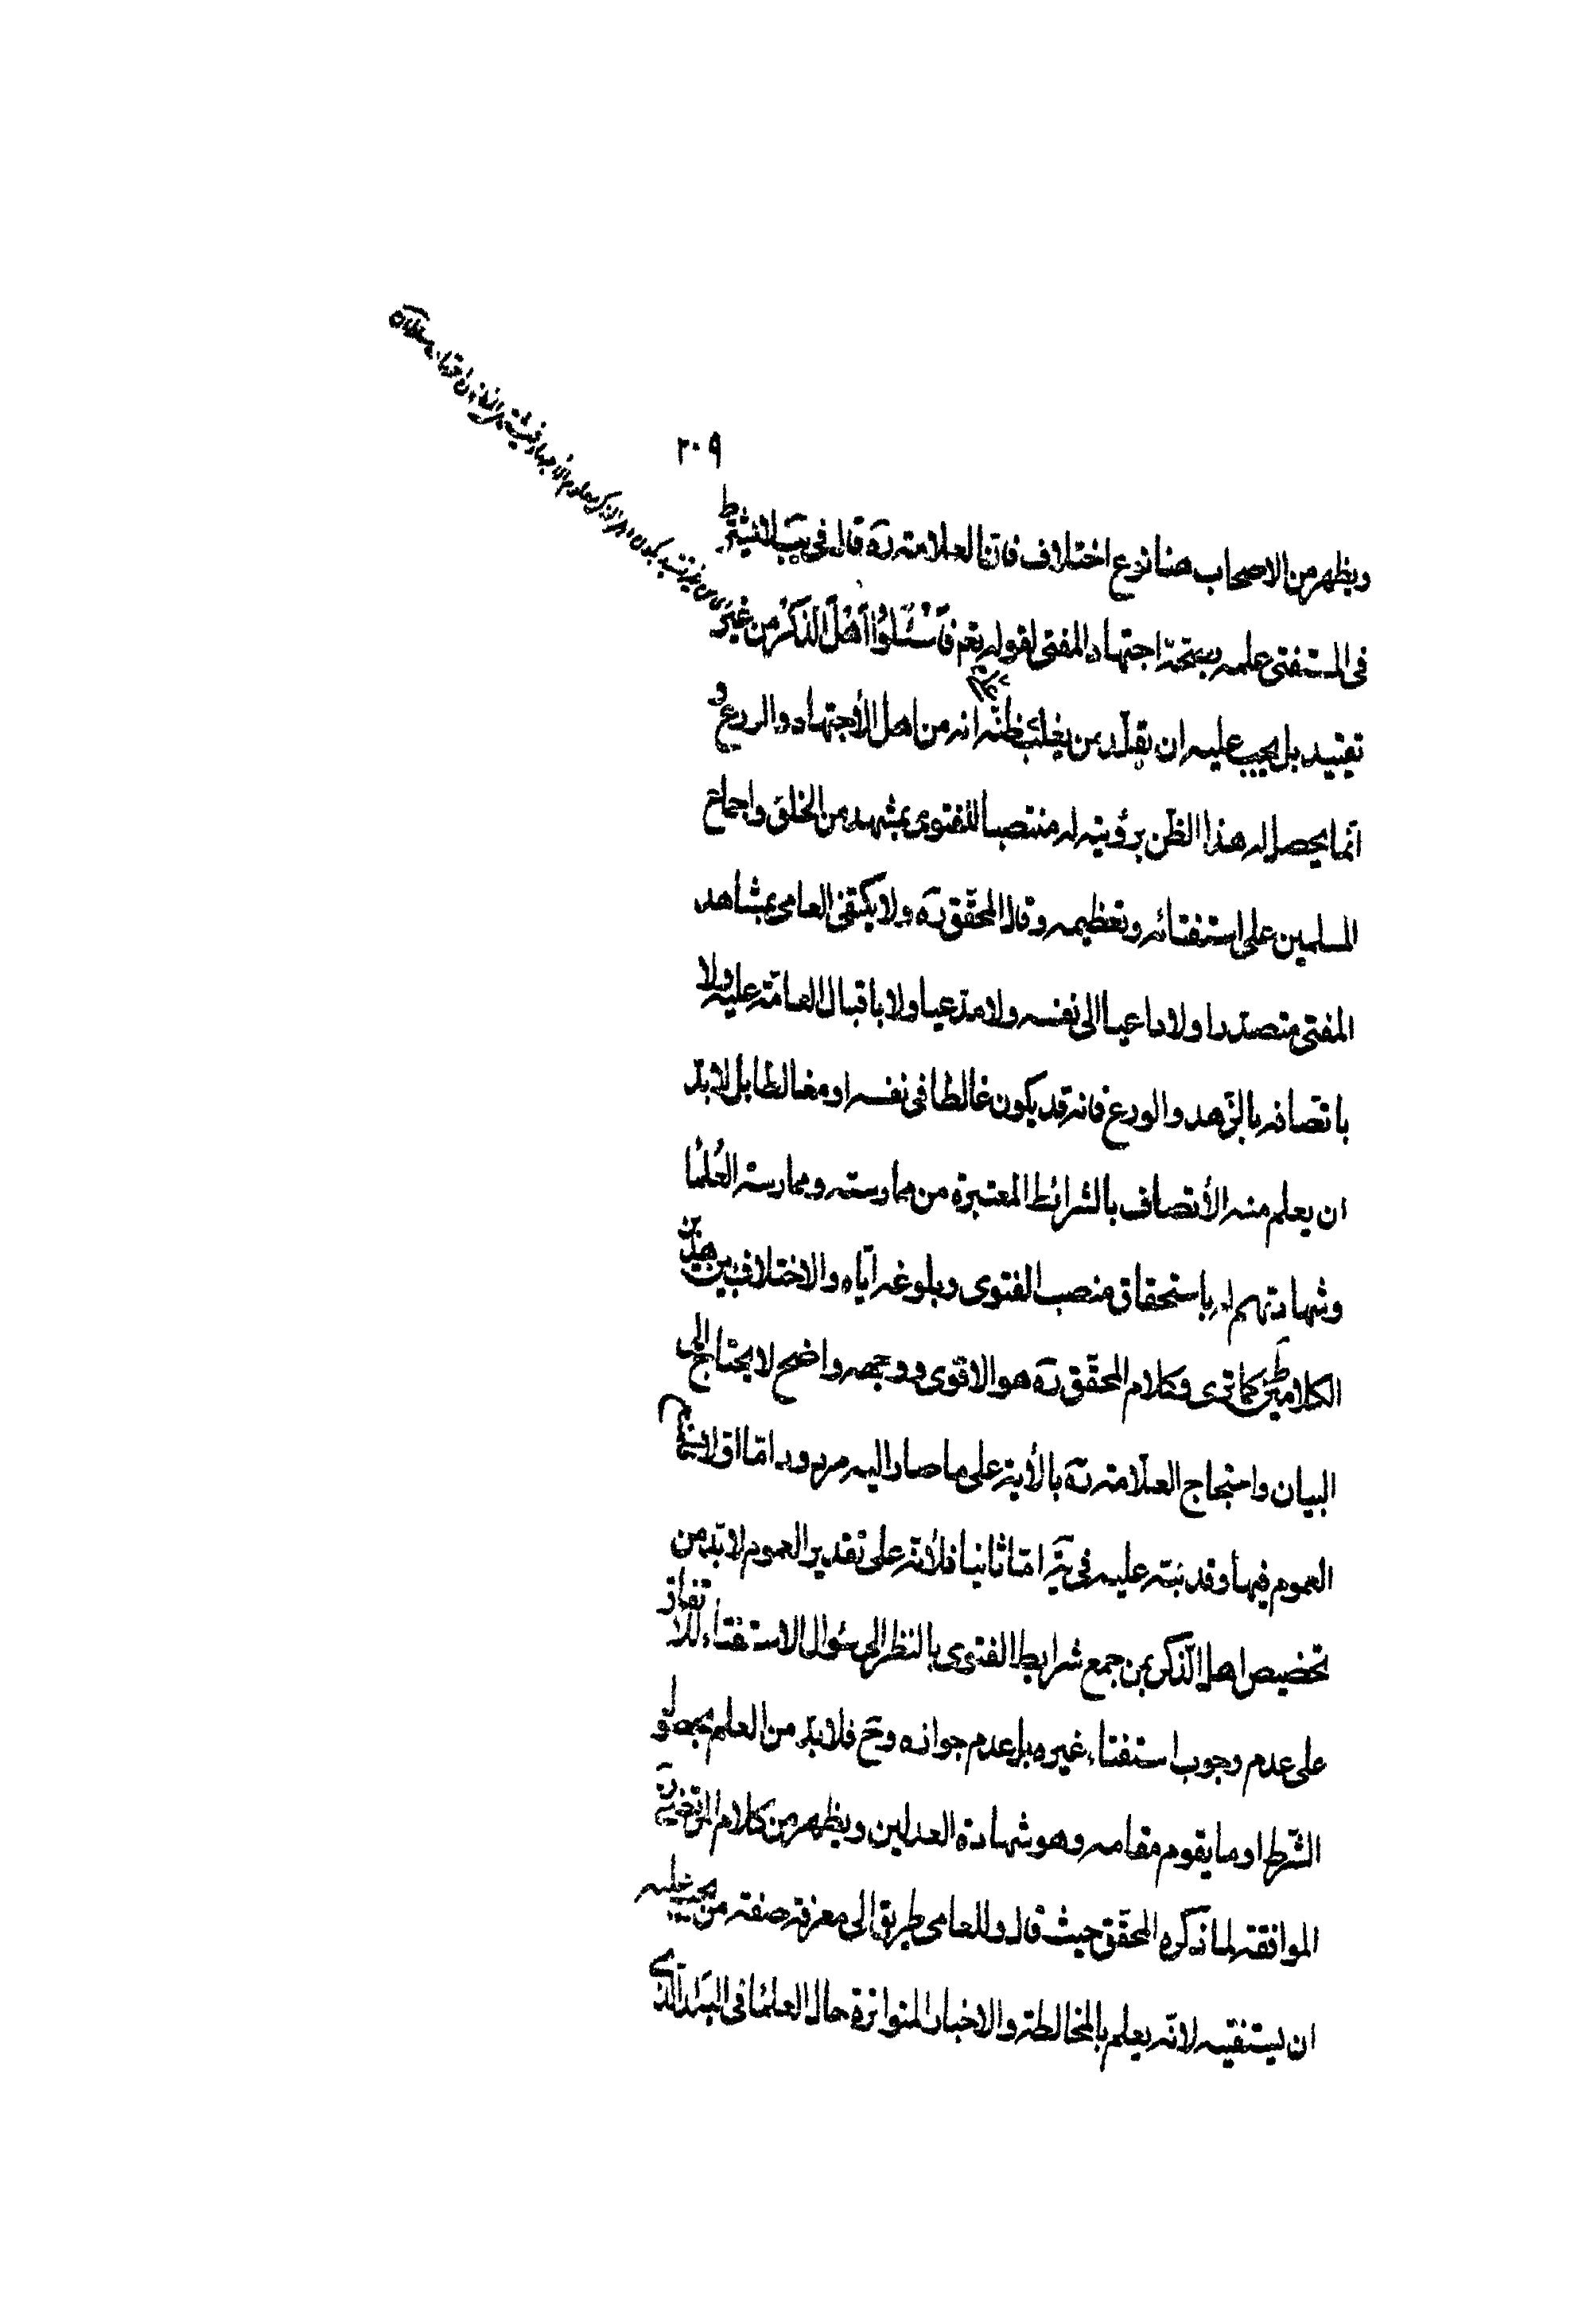 ٢٠٩
ويظهر من الاصحاب هنا نوع اختلاف فان العلامة ره قال في يب لا يشترط
في المستفتي علمه بصحة اجتهاد المفتي لقوله تعم فَاسْئَلُوا أَهْلَ الذِّكْرِ من غير
تقييد بل يجب عليه ان يقلد من يغلب على ظنه انه من اهل الأجتهاد والورع و
انما يحصل له هذا الظن برؤيته له منتصبا للفتوى بمشهد من الخلق واجماع
المسلمين على استفتائه وتعظيمه وقال المحقق ره ولا يكتفى العامي بمشاهد
المفتي متصدرا ولا داعيا الى نفسه ولا مدعيا ولا باقبال العامة عليه ولا
باتصافه بالزهد والورع فانه قد يكون غالطا في نفسه او مغالطا بل لا بد
ان يعلم منه الأتصاف بالشرائط المعتبرة من ممارسته وممارسة العلما
وشهادتهم له باستحقاق منصب الفتوى وبلوغه اياه والاختلاف بين هذين
الكلامين كما ترى وكلام المحقق ره هو الاقوى ووجهه واضح لا يحتاج الى
البيان واحتجاج العلامة ره بالأية على ما صار اليه مردود اما اولا فلمنع
العموم فيها وقد نبه عليه في ية اما ثانيا فلأنه على تقدير العموم لا بد من
تخصيص اهل الذكر بمن جمع شرايط الفتوى بالنظر الى سؤال الاستفتاء للاتفاق
على عدم وجوب استفتاء غيره بل عدم جوازه وح فلا بد من العلم بحصول
الشرط او ما يقوم مقامه وهو شهادة العدلين ويظهر من كلام المرتضى ره
الموافقة لما ذكره المحقق حيث قال وللعامي طريق الى معرفة صفة من يجب عليه
ان يستفتيه لانه يعلم بالمخالطة والاخبار المتواترة حال العلما في البلد الذي